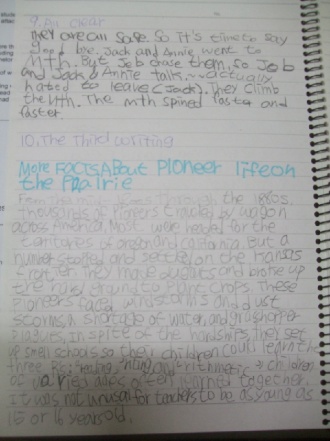 9. All clear
They are all safe. So it's time to say
good bye. Jack and Annie went to
Mth. But Jeb chase them, so Jeb
and Jack & Annie talks, actually
hated to leave (Jack). They climb
the Mth. The mth spined faster and
faster
10. The Third writing
More FACTS About Pioneer life on
the Prairie
From the through the 1860s,
thousands of Pioneers traveled by wagon
across America. Most were headed for the
territories of oregon and california. But a
number stopped and settled on the Kansas
frontier. They made dugouts and broke up
the ground to plant crops. These
Pioneers faced windstorms and dust
storms, a shortage of water, and grasshopper
Plagues, in spite of the hardships, they set
up small schools so their children could learn the
three Rs: reading, 'riting, and 'rithmetic children
of various ages often learned together.
It was not unusual for teachers to be as young as
15 or 16 years old.